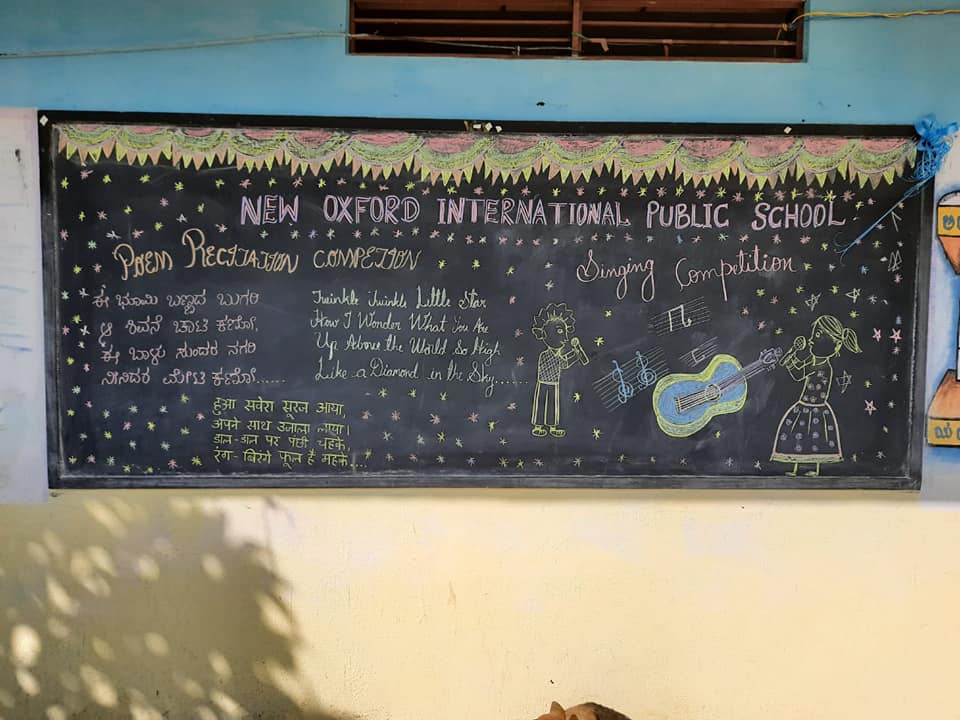 NEW OXFORD INTERNATIONAL PUBLIC SCHOOL
POEM RECITATION COMPETION
ಈ ಭೂಮಿ ಬಣ್ಣದ ಬುಗರಿ
ಆ ಶಿವನೆ ಚಾಟಿ ಕಣೋ,
ಈ ಬಾಳು ಸುಂದರ ನಗರಿ
ನೀನಿದರ ಮೇಟಿ ಕಣೋ......
Twinkle Twinkle Little Star
How I Wonder What You Are
Up Above the World So High
Like a Diamond in the Sky.......
हुआ सवेरा सूरज आया,
अपने साथ उजाला लाया।
डाल-डाल पर पंछी चहके,
रंग-बिरंगे फूल है महके....
Singing Competition